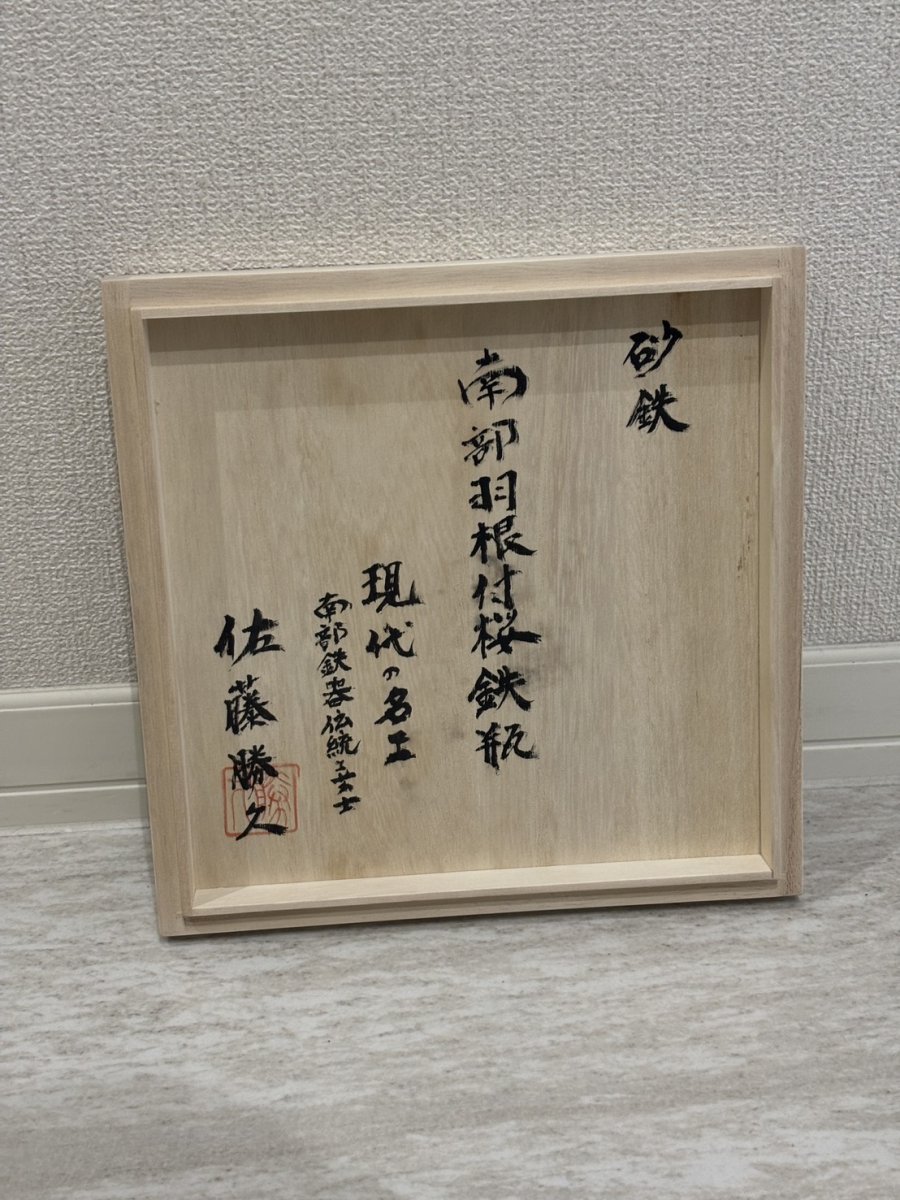 砂鉄
南部羽根付桜鉄瓶
現代の名工
南部鉄器伝統工芸士
佐藤勝久
勝